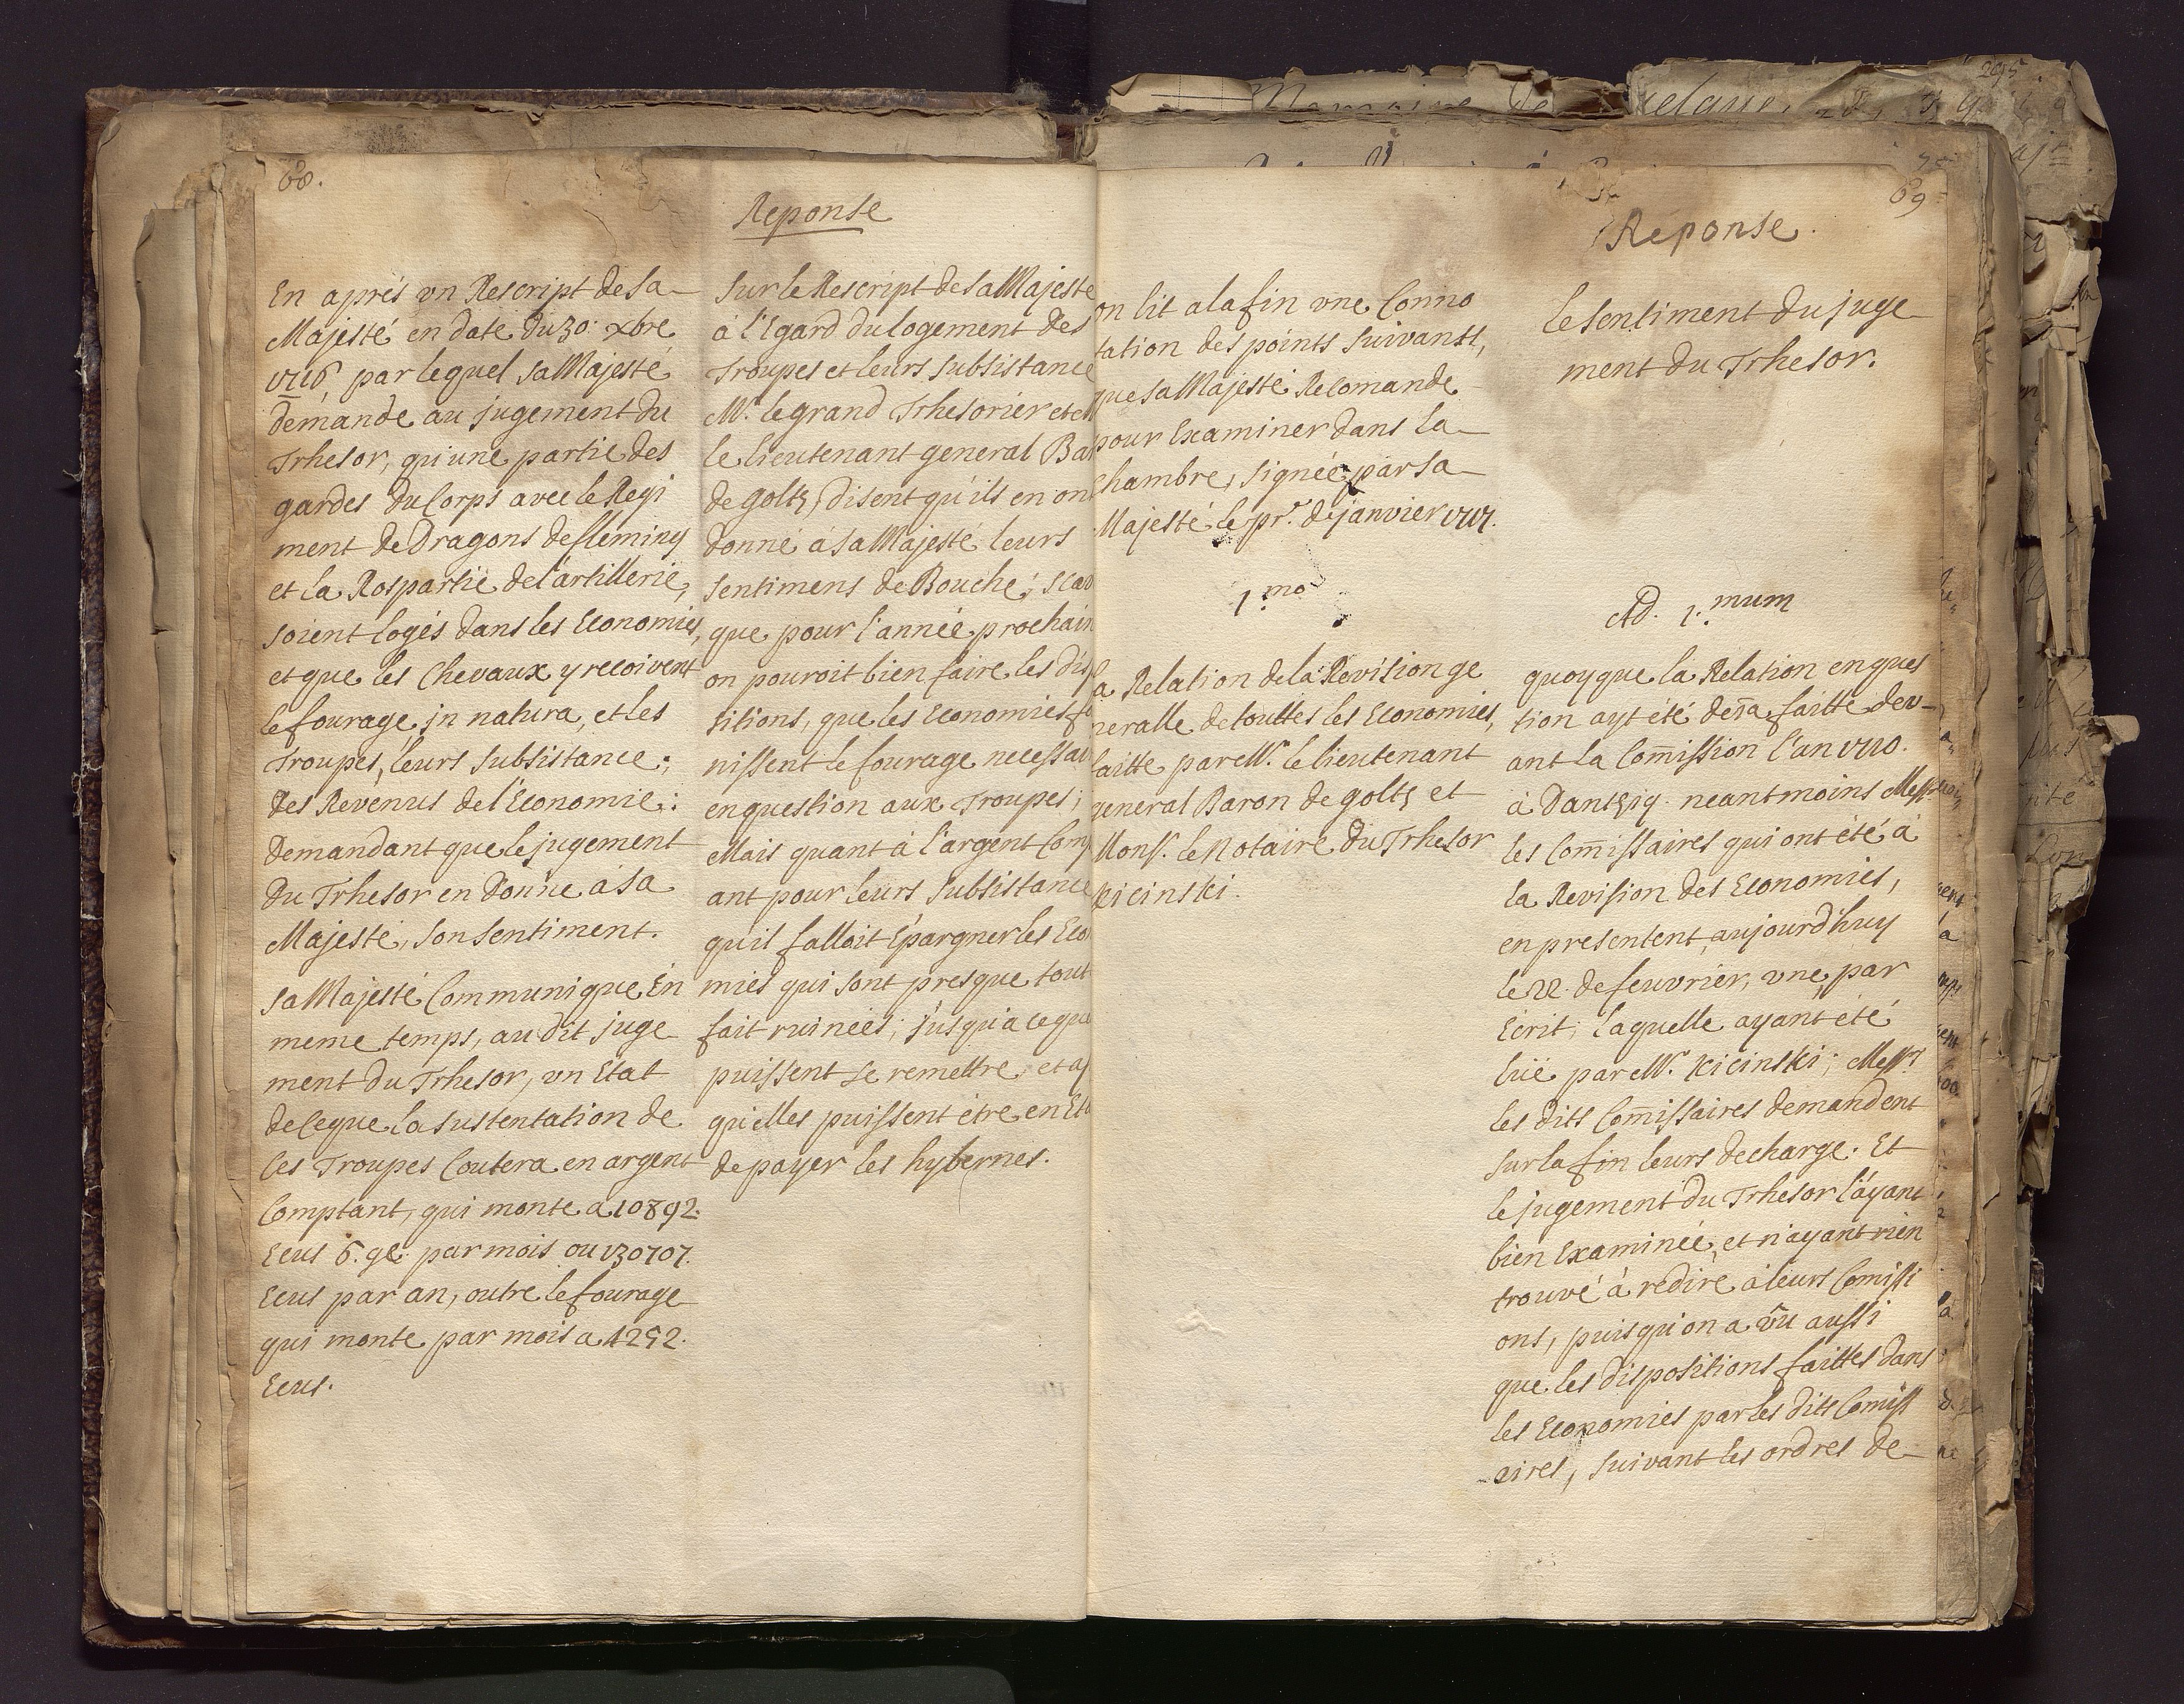 68.
En aprés vn Rescript de sa
Majesté en date du 30. xbre
1716, par lequel sa Majesté
demande au jugement du
Trhesor, qu'une partie des
gardes du Corps avec le Regi
ment de Dragons de fleming
et la Rospartie de l'artillerie,
soient logés dans les Economies,
et que les Chevaux y recoivent
le fourage in natura, et les
Troupes, leurs subsistance;
des Revenus de l'Economie:
Demandant que le jugement
du Trhesor en donne á sa
Majesté, son sentiment.
sa Majesté Communique En
meme temps, au dit juge
ment du Trhesor, vn Etat
de ce que la sustentation de
ces Troupes Coutera en argent
Comptant, qui monte a 10892.
Ecus 6. gl. par mois ou 130707.
Ecus par an, outre le fourage
qui monte par mois a 1252.
Ecus.
Reponse
Sur le Rescript de sa Majeste
à l'Egard du logement des
Troupes et leurs subsistance
Mr. le grand Trhesorier et
le lieutenant general
de Goltz, disent qu'ils en
donné á sa Majesté leurs
sentimens de Bouche;
que pour l'année
on pouroit bien faire les
sitions, que les Economies
nissent le fourage
en question aux Troupes;
Mais quant à l'argent
ant pour leurs subsistance
qu'il falloit Epargner les
mies qui sont presque tout
fait ruineés; jusqu'a ce que
puissent se remettre et
qu'elles puissent étre en
de payer les hybernes.
69
Réponse.
on lit a la fin vne Conno
tation des points suivants,
que sa Majesté Recomande
pour Examiner dans la
Chambre, signée par sa
Majesté le pr. de janvier 1717.
1.mo
la Relation de la Revision ge
neralle de touttes les Economies,
faitte par Mr. le lieutenant
general Baron de Goltz et
Mons. le Notaire du Trhesor
Kicinski.
le sentiment du juge
ment du Trhesor.
Ad. 1.mum
quoyque la Relation en ques
tion ayt été deja faitte dev-
ant la Comission l'an 1710.
à Dantzig. neantmoins Messrs
les Comissaires qui ont été à
la Revision des Economies,
en presentent aujourd'huy
le 22 de feuvrier, vne par
Ecrit; laquelle ayant été
lüe par Mr. Kicinski; Messrs
les dits Comissaires demandent
sur la fin leurs decharge. Et
le jugement du Trhesor l'ayant
bien Examinée, et n'ayant rien
trouvé à redire à leurs Comissi
ons, puisqu'on a vû aussi
que les dispositions faittes dans
les Economies par les dits Comiss
aires, suivant les ordres de